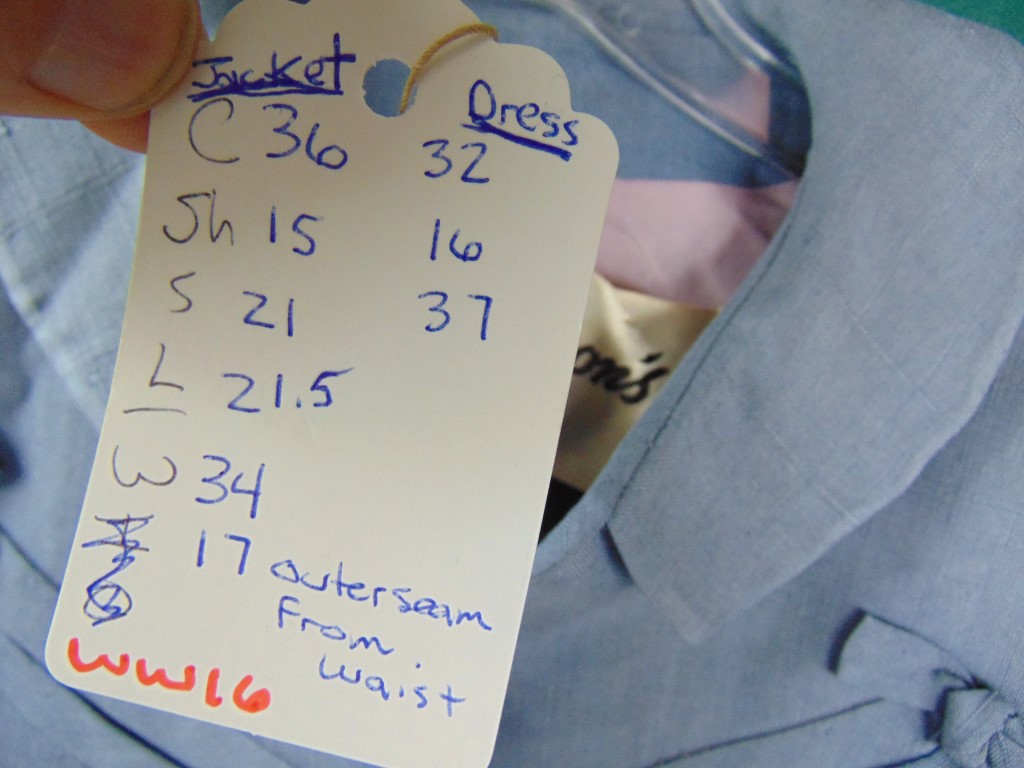 Jacket Dress
C 36 32
Sh 15 16
S 21 37
L 21.5
W 34
17 outerseam
From
waist
WW16
on's